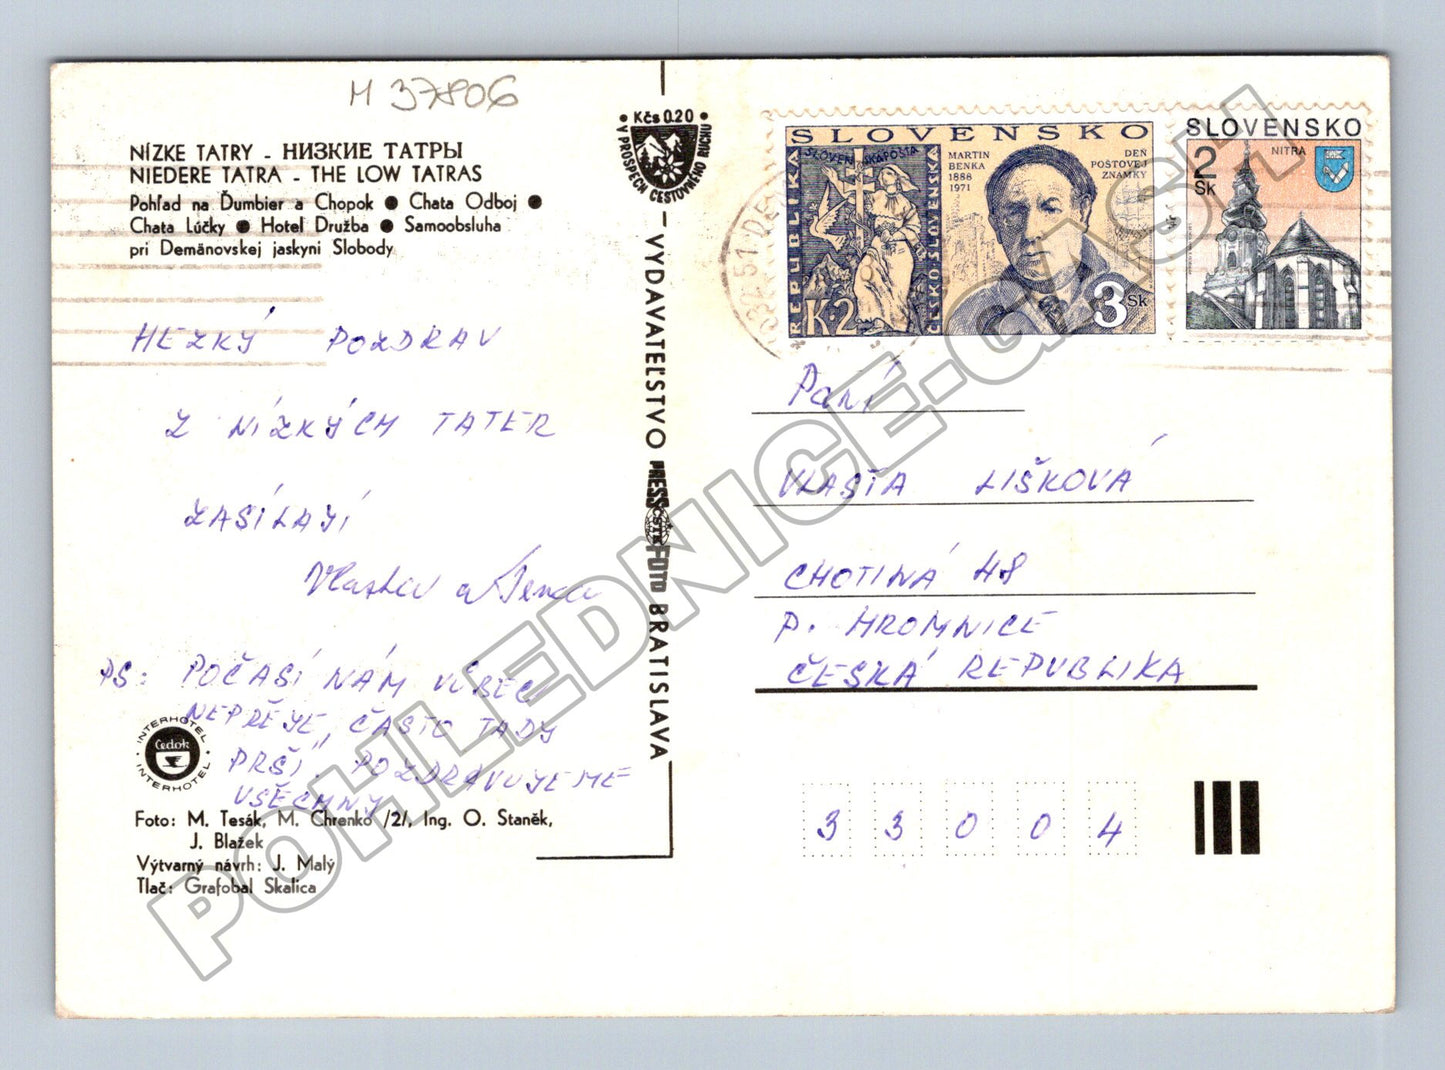 M 37806
NÍZKE TATRY - НИЗКИЕ ТАТРЫ
NIEDERE TATRA - THE LOW TATRAS
Pohľad na Ďumbier a Chopok ● Chata Odboj ●
Chata Lúčky ● Hotel Družba ● Samoobsluha
pri Demänovskej jaskyni Slobody
HEZKÝ POZDRAV
Z NÍZKÝCH TATER
ZASÍLAJÍ
Vlasta a
PS: POČASÍ NÁM VŮBEC
NEPŘEJE, ČASTO TADY
PRŠÍ. POZDRAVUJEME
VŠECHNY
INTERHOTEL
Čedok
INTERHOTEL
Foto: M. Tesák, M. Chrenko /2/, Ing. O. Staněk,
J. Blažek
Výtvarný návrh: J. Malý
Tlač: Grafobal Skalica
Kčs 0.20
V PROSPECH CESTOVNÉHO RUCHU
VYDAVATEĽSTVO PRESSFOTO BRATISLAVA
ČSTK
SLOVENSKO
REPUBLIKA
SLOVENSKÁ POŠTA
ČESKOSLOVENSKÁ
K·2
MARTIN
BENKA
1888
1971
DEŇ
POŠTOVEJ
ZNÁMKY
3 Sk
SLOVENSKO
2
Sk
NITRA
Paní
VLASTA LIŠKOVÁ
CHOTINÁ 48
P. HROMNICE
ČESKÁ REPUBLIKA
33004
POHLEDNICE-GASH